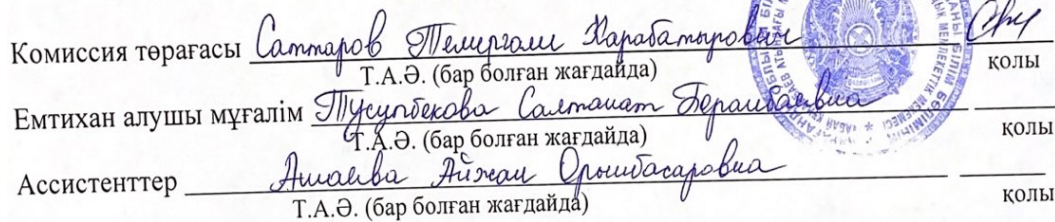 Комиссия төрағасы Саттаров Темиргали Карабатырович
Т.А.Ә. (бар болған жағдайда) қолы
Емтихан алушы мұғалім Тусупбекова Салтанат
Т.А.Ә. (бар болған жағдайда) қолы
Ассистенттер Айжан Орынбасаровна
Т.А.Ә. (бар болған жағдайда) қолы